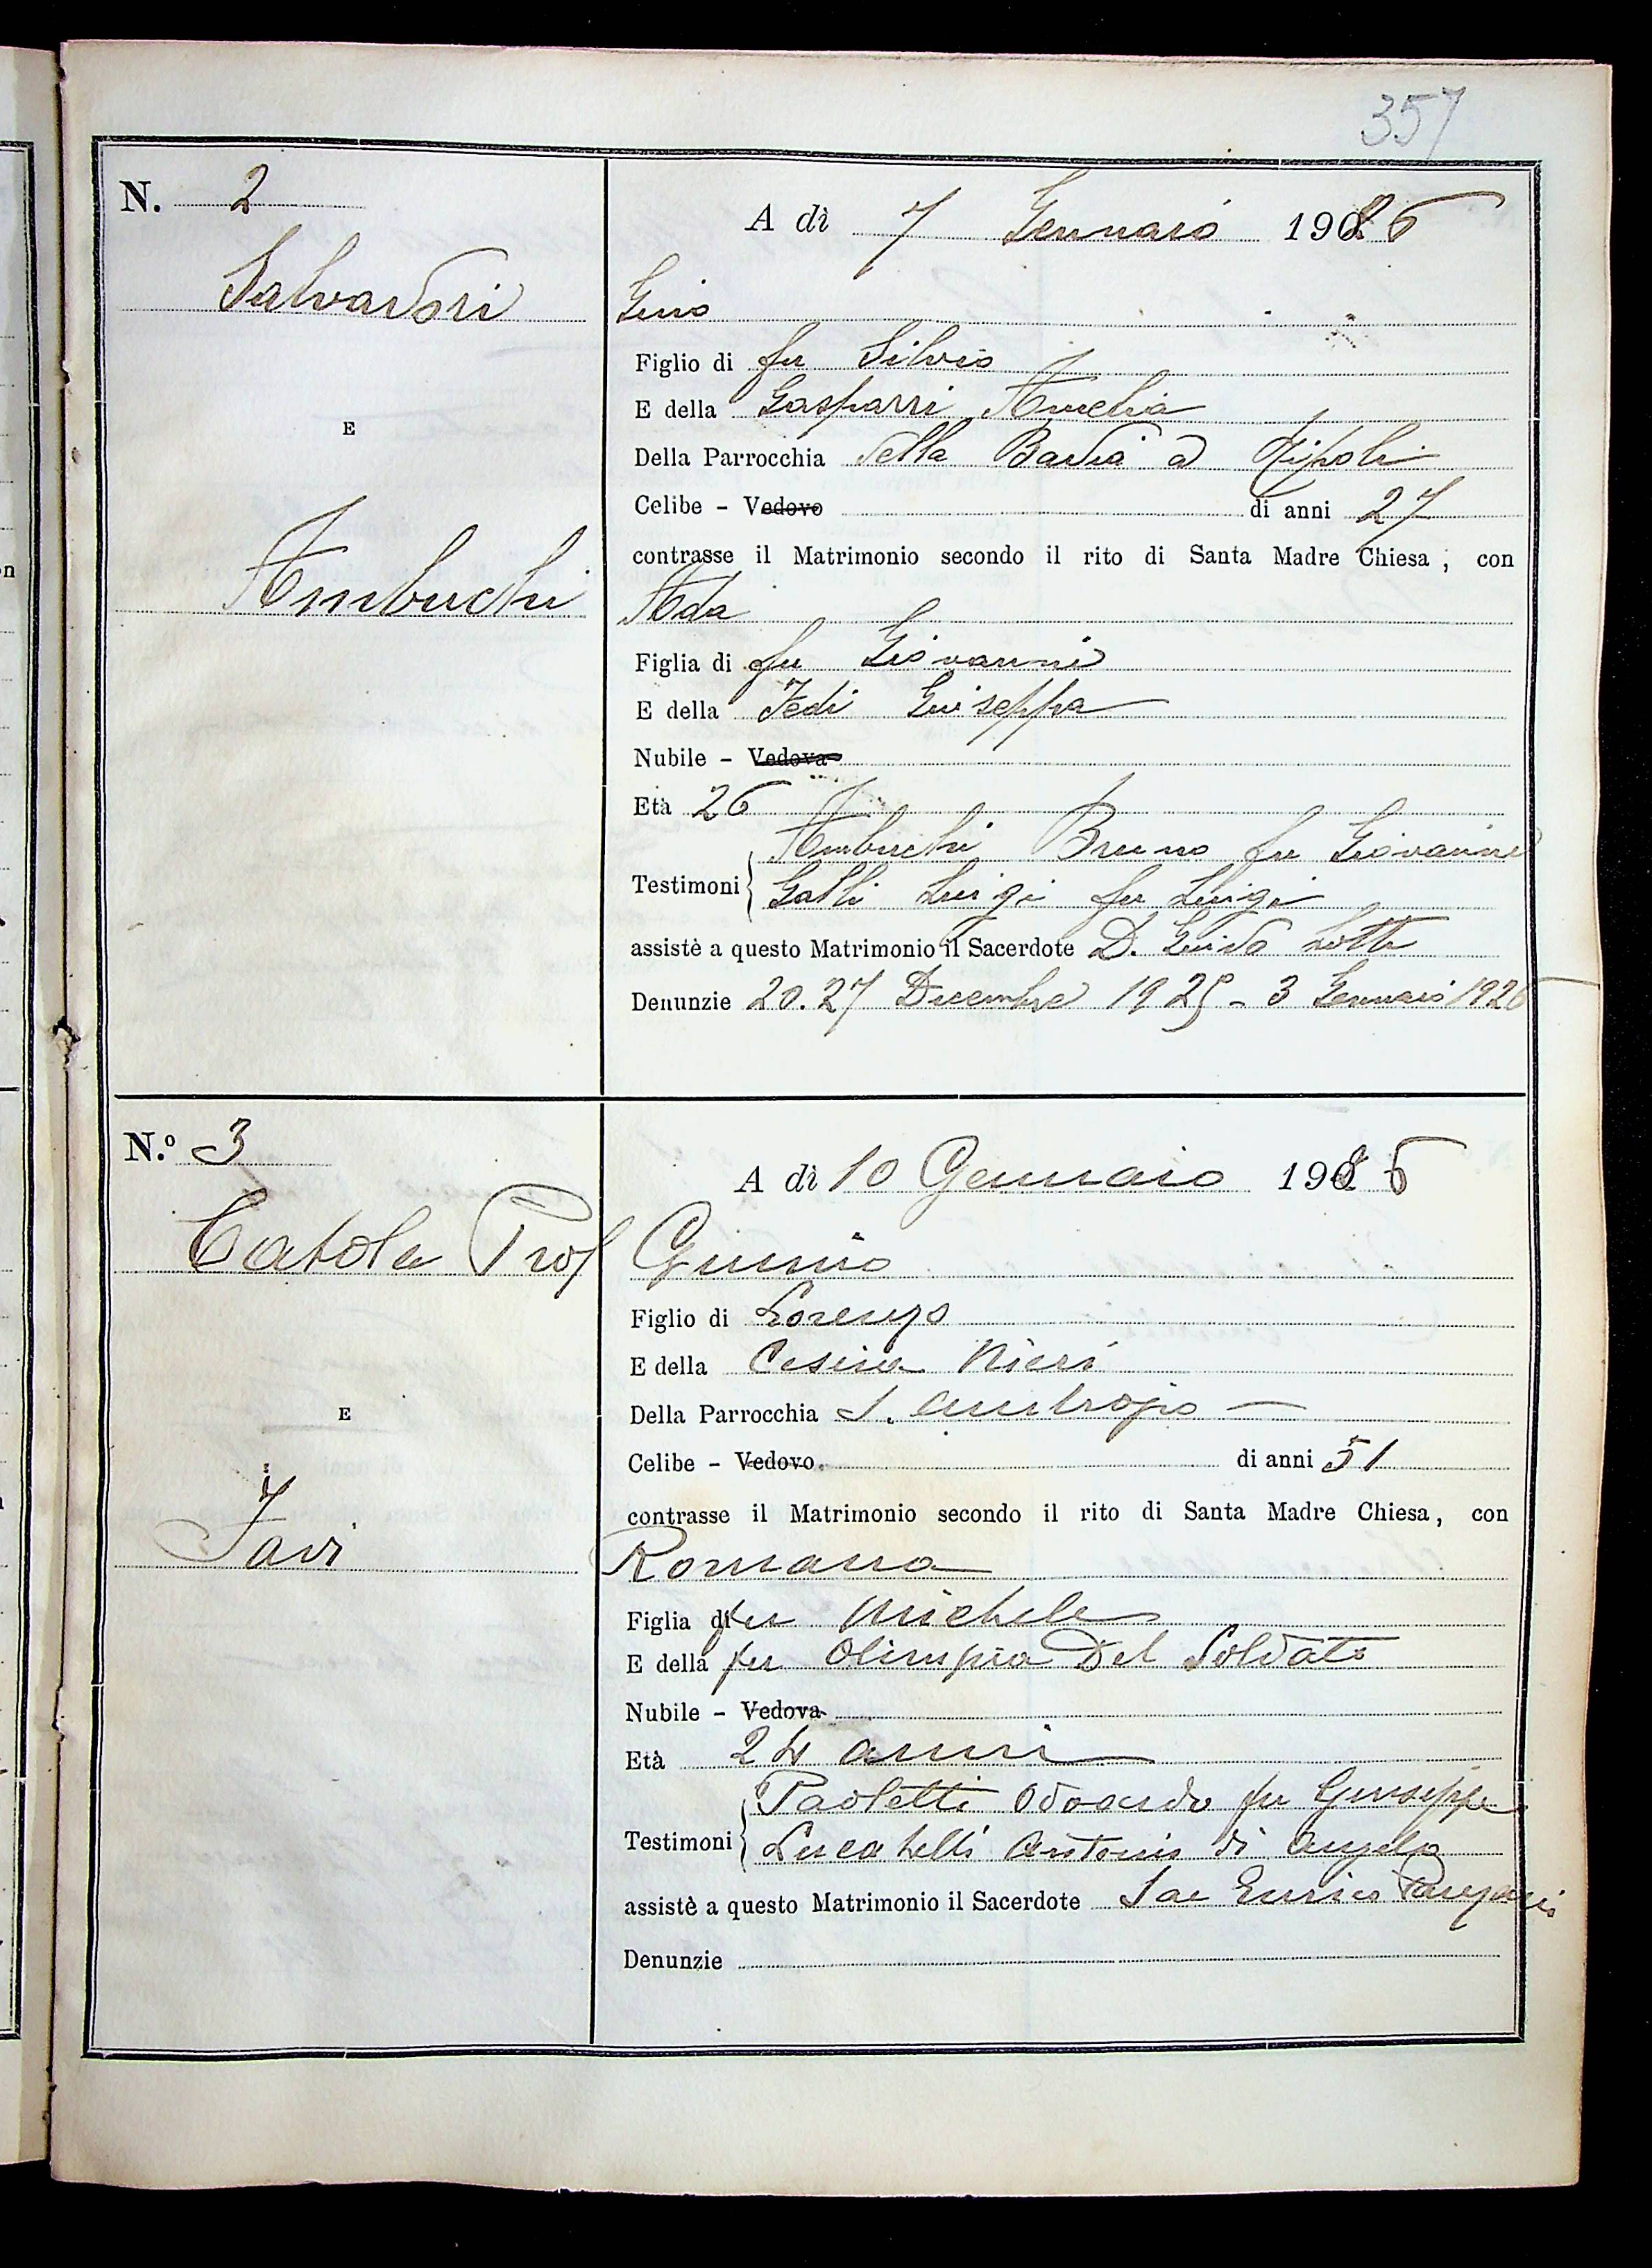 357
N. 2
A dì 7 Gennaio 1926
Salvadori
Gino
Figlio di fu Silvio
E della Gasparri Amelia
Della Parrocchia della Badia a Ripoli
E
Celibe - Vedovo di anni 27
contrasse il Matrimonio secondo il rito di Santa Madre Chiesa, con
Ambuchi
Ada
Figlia di fu Giovanni
E della Fedi Giuseppa
Nubile - Vedova
Età 26
Ambuchi Bruno fu Giovanni
Testimoni Galli Luigi fu Luigi
assistè a questo Matrimonio il Sacerdote D. Guido Lotti
Denunzie 20. 27 Dicembre 1925 - 3 Gennaio 1926
N.º 3
A dì 10 Gennaio 1926
Catola Prof
Giunio
Figlio di Lorenzo
E della Cesira Nieri
Della Parrocchia S. Ambrogio
E
Celibe - Vedovo di anni 51
contrasse il Matrimonio secondo il rito di Santa Madre Chiesa, con
Favi
Romana
Figlia di fu Michele
E della fu Olimpia Del Soldato
Nubile - Vedova
Età 24 anni
Paoletti Odoardo fu Giuseppe
Testimoni Lucatelli Antonio di Angelo
assistè a questo Matrimonio il Sacerdote Sac Enrico
Denunzie